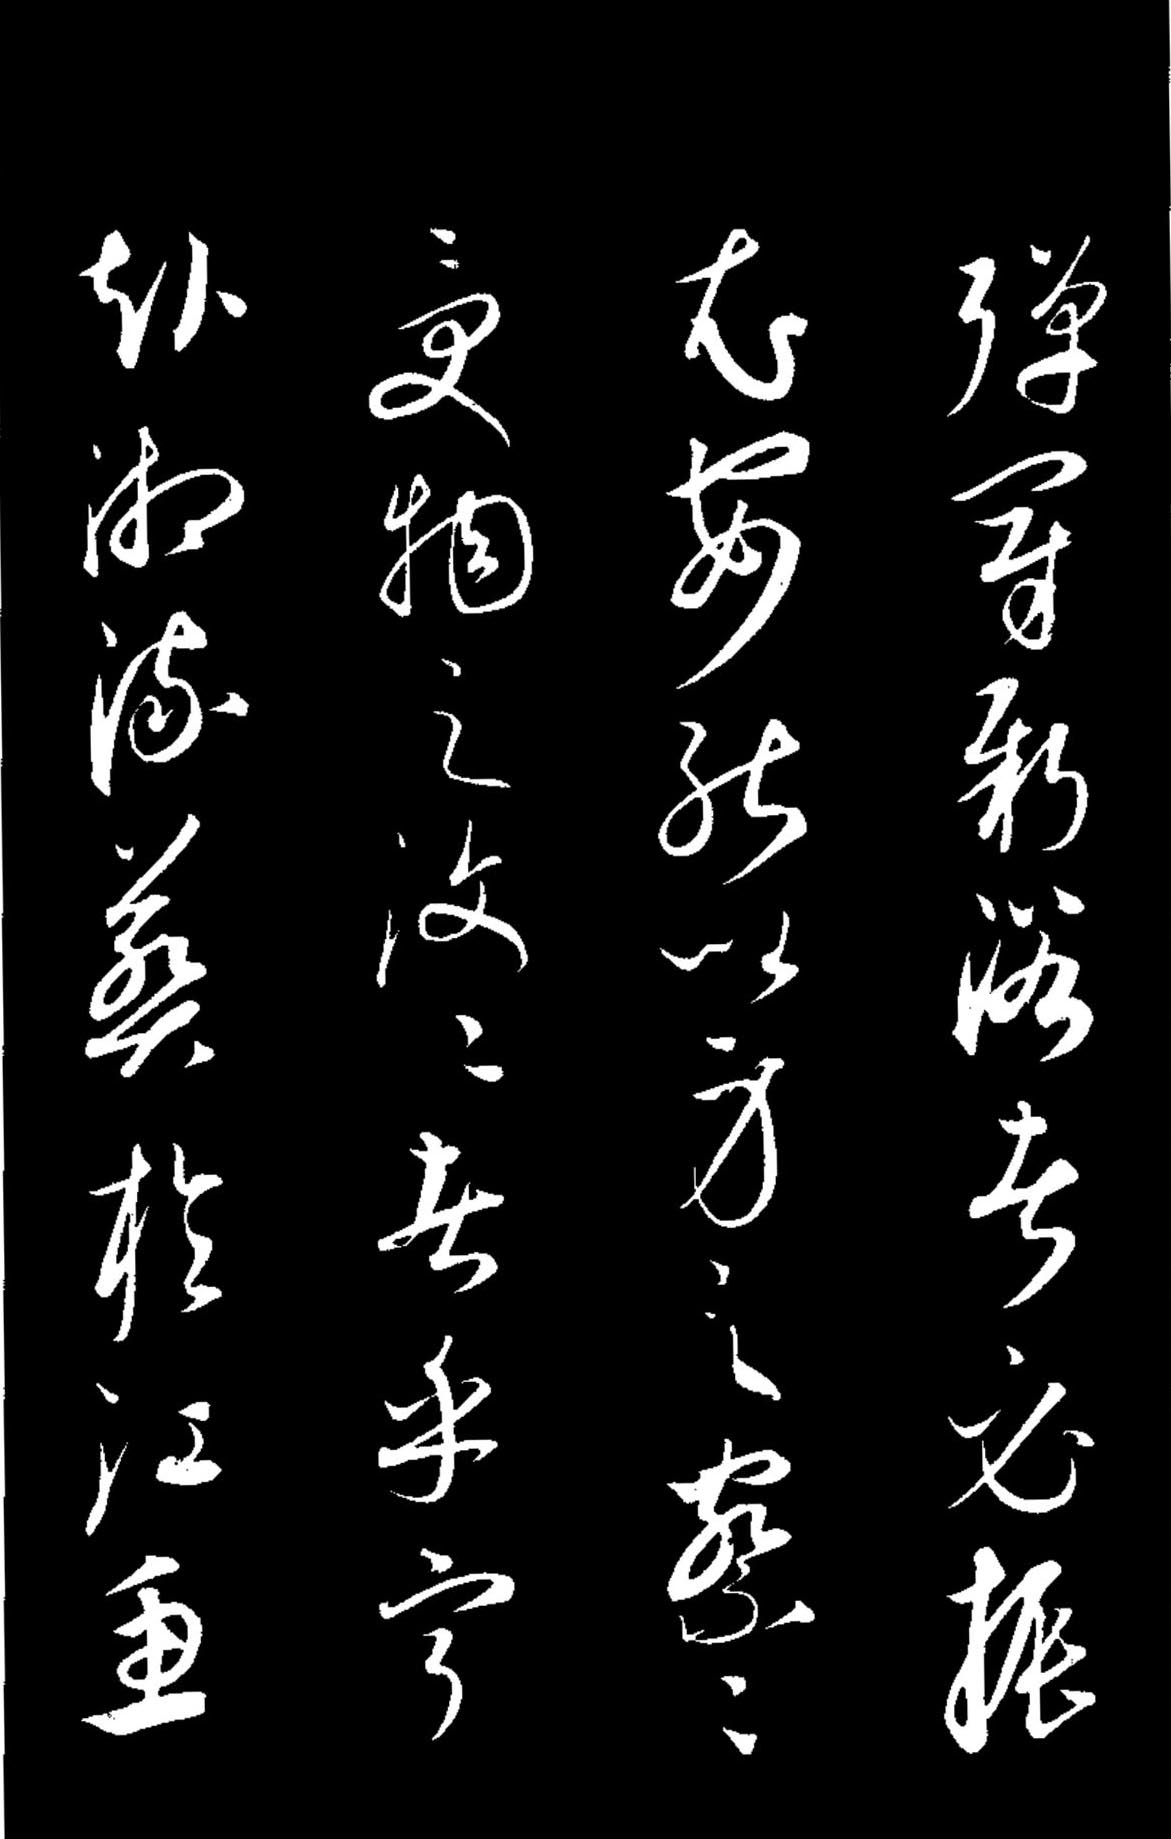 彈冠新浴者必振
衣安能以身之察〻
受物之汶〻者乎寧
赴湘流葬於江魚